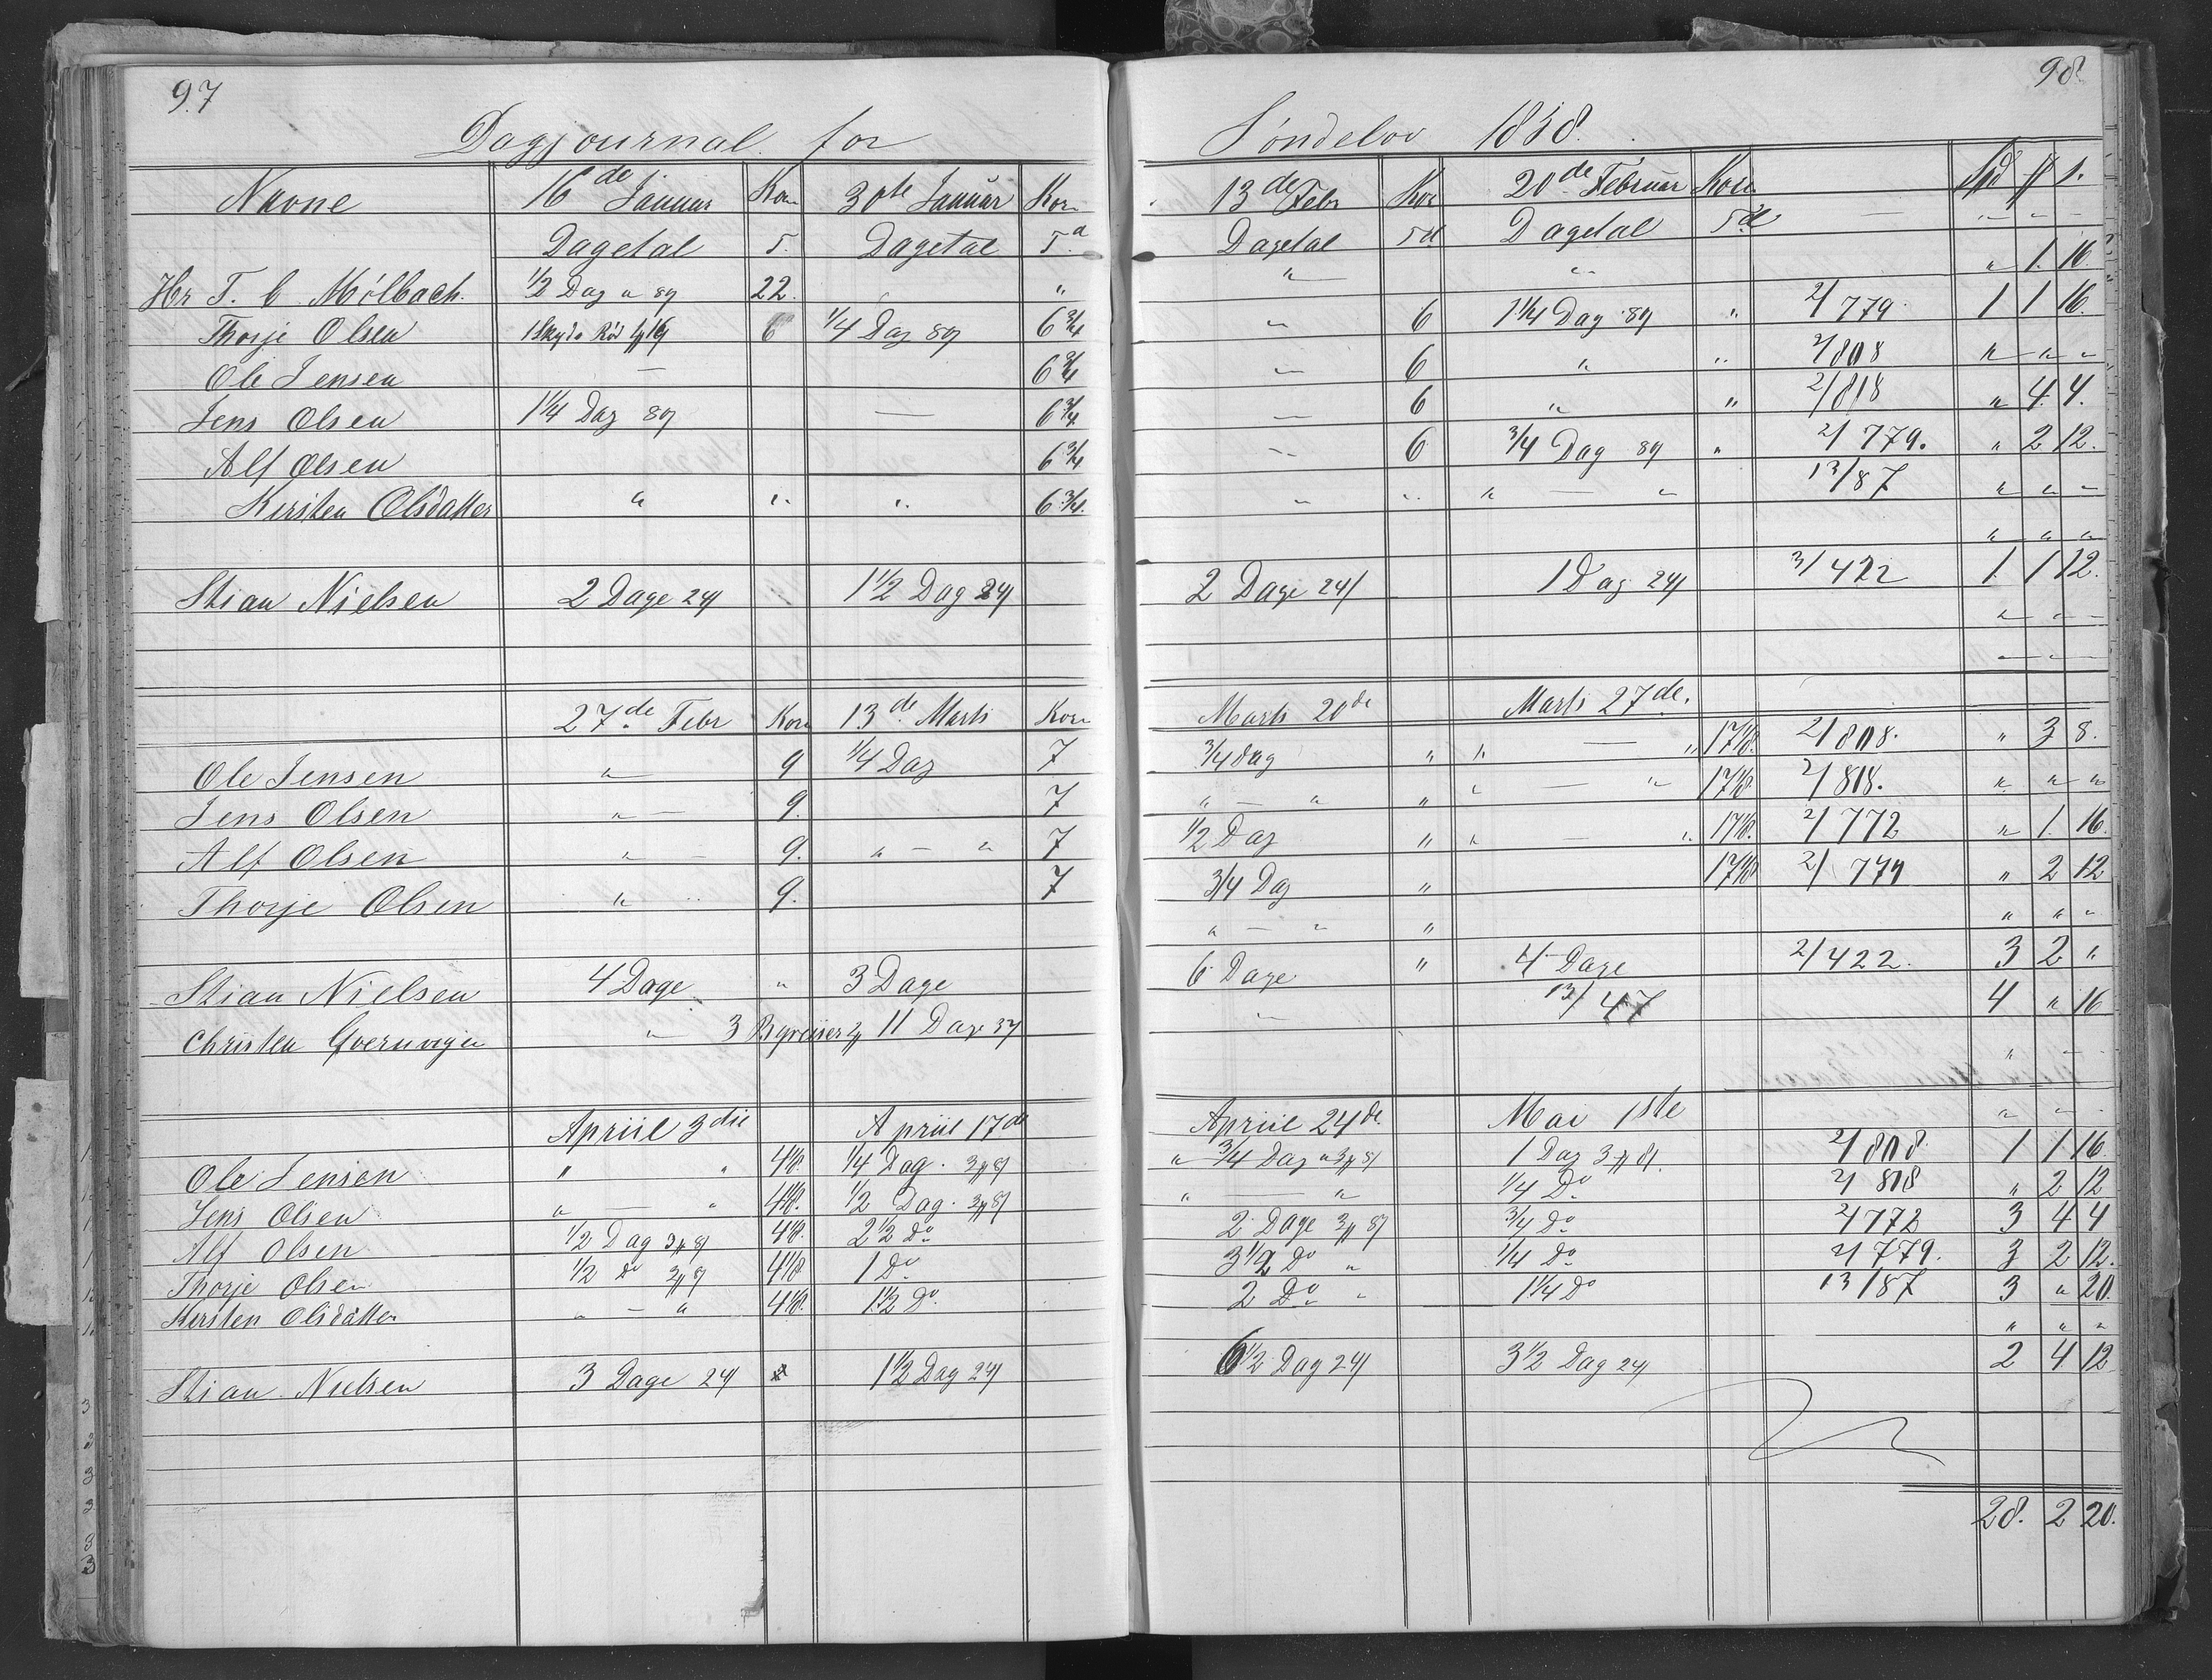 97
Dagjournal for
Navne 16de Januar Korn 30te Januar Korn
Dagetal T. Dagetal Td
Hr T. C. Mølbach. 1/2 Dag a 8/9 22. "
Thorje Olsen 6 1/4 Dag 6 3/4
Ole Jensen — 6 3/4
Jens Olsen 1 1/4 Dag — 6 3/4
Alf Olsen 6 3/4
Kirsten Olsdatter " " " 6 3/4.
Stian Nielsen 2 Dage 24/ 1 1/2 Dag 24/
27de Febr Korn 13de Marts Korn
Ole Jensen " 9 1/4 Dag 7
Jens Olsen " — 9. 7
Alf Olsen " — 9. " — " 7
Thorje Olsen " 9. 7
Stian Nielsen 4 Dage " 3 Dage
Christen Qvernvigen " 3 11 Dage
Apriil 3die Apriil 17de
Ole Jensen " " 4 1/8. 1/4 Dag.
Jens Olsen " — " 4 1/8. 1/2 Dag.
Alf Olsen 1/2 Dag 4 1/8. 2 1/2 Do
Thorje Olsen 1/2 Do 4 1/8 1 Do
Kirsten Olsdatter " — " 4 1/8. 1 1/2 Do.
Stian Nielsen 3 Dage 24/ 1 1/2 Dag 24/
98
Søndeløv 1858.
13de Febr Kor 20de Februar Korn Spd
Dagetal Td Dagetal Td — " — " —
" " " 1. 16.
" 6 1 1/4 Dag " 2/779. 1 1 16.
" 6 " " 2/808 " " "
" 6 " " 2/818 " 4. 4.
" 6 3/4 Dag " 2/779. " 2 12.
" " " — " 13/87 " " "
" " "
2 Dage 24/ 1 Dag 24/ 3/422 1. 1 12.
" — " —
— " —
Marts 20de Marts 27de.
3/4 dag " " — " 17 1/8. 2/808. " 3 8.
" — " " " — " 17 1/8. 2/818. " " "
1/2 Dag " " — " 17 1/8. 2/772 " 1. 16.
3/4 Dag " 17 1/8 2/779 " 2 12
" — " " " " "
6 Dage " 4 Dage 2/422. 3 2 "
" 13/47 4 " 16
" —
Apriil 24de. Mai 1ste " " -
" 3/4 Dag 1 Dag 2/808. 1 1 16.
" — " 1/4 Do 2/818 " 2 12
2 Dage 3/4 Do 2/772 3 4 4
3 1/2 Do " 1/4 Do 2/779. 3 2 12.
2 Do " 1 1/4 Do 13/87 3 " 20.
" " "
6 1/2 Dag 24/ 3 1/2 Dag 24/ 2 4. 12
28. 2 20.